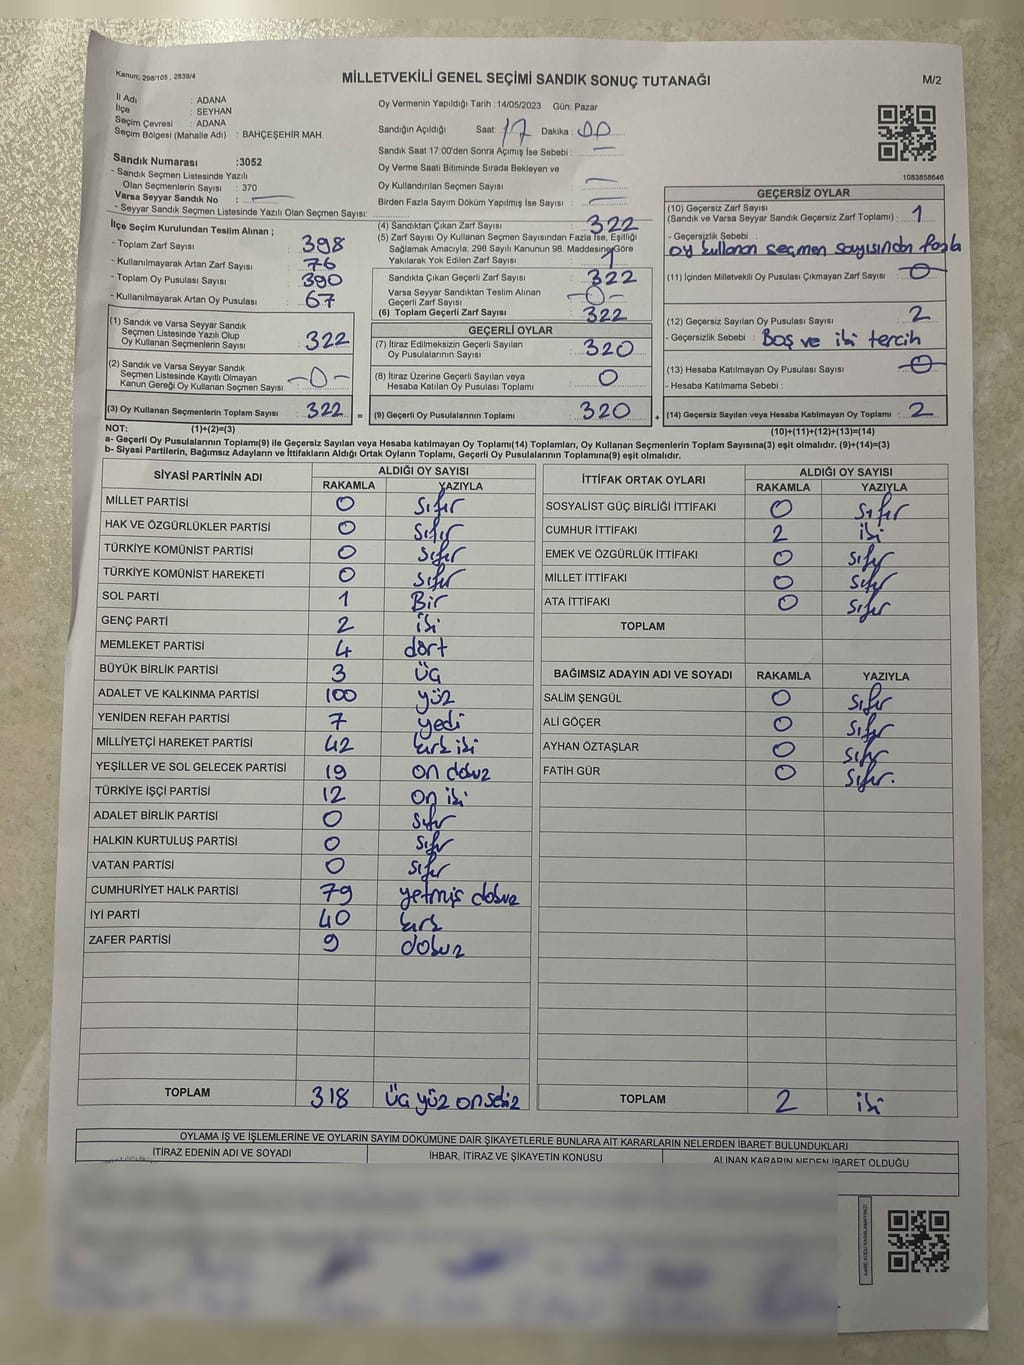 Kanun: 298/105 , 2839/4
MİLLETVEKİLİ GENEL SEÇİMİ SANDIK SONUÇ TUTANAĞI
M/2
İl Adı : ADANA
İlçe : SEYHAN
Seçim Çevresi : ADANA
Seçim Bölgesi (Mahalle Adı) : BAHÇEŞEHİR MAH.
Sandık Numarası :3052
- Sandık Seçmen Listesinde Yazılı
Olan Seçmenlerin Sayısı : 370
Varsa Seyyar Sandık No :
- Seyyar Sandık Seçmen Listesinde Yazılı Olan Seçmen Sayısı:
Oy Vermenin Yapıldığı Tarih :14/05/2023 Gün: Pazar
Sandığın Açıldığı Saat: 17 Dakika : 00
Sandık Saat 17:00'den Sonra Açımış İse Sebebi :
Oy Verme Saati Bitiminde Sırada Bekleyen ve
Oy Kullandırılan Seçmen Sayısı :
Birden Fazla Sayım Döküm Yapılmış İse Sayısı :
1083858646
İlçe Seçim Kurulundan Teslim Alınan ;
- Toplam Zarf Sayısı : 398
- Kullanılmayarak Artan Zarf Sayısı : 76
- Toplam Oy Pusulası Sayısı : 390
- Kullanılmayarak Artan Oy Pusulası : 67
(1) Sandık ve Varsa Seyyar Sandık
Seçmen Listesinde Yazılı Olup
Oy Kullanan Seçmenlerin Sayısı : 322
(2) Sandık ve Varsa Seyyar Sandık
Seçmen Listesinde Kayıtlı Olmayan
Kanun Gereği Oy Kullanan Seçmen Sayısı : -0-
(3) Oy Kullanan Seçmenlerin Toplam Sayısı : 322 =
(4) Sandıktan Çıkan Zarf Sayısı : 322
(5) Zarf Sayısı Oy Kullanan Seçmen Sayısından Fazla İse, Eşitliği
Sağlamak Amacıyla, 298 Sayılı Kanunun 98. Maddesine Göre
Yakılarak Yok Edilen Zarf Sayısı : 1
Sandıkta Çıkan Geçerli Zarf Sayısı : 322
Varsa Seyyar Sandıktan Teslim Alınan
Geçerli Zarf Sayısı : -0-
(6) Toplam Geçerli Zarf Sayısı : 322
GEÇERLİ OYLAR
(7) İtiraz Edilmeksizin Geçerli Sayılan
Oy Pusulalarının Sayısı : 320
(8) İtiraz Üzerine Geçerli Sayılan veya
Hesaba Katılan Oy Pusulası Toplamı : 0
(9) Geçerli Oy Pusulalarının Toplamı : 320 +
GEÇERSİZ OYLAR
(10) Geçersiz Zarf Sayısı
(Sandık ve Varsa Seyyar Sandık Geçersiz Zarf Toplamı) : 1
- Geçersizlik Sebebi :
oy kullanan seçmen sayısından fazla
(11) İçinden Milletvekili Oy Pusulası Çıkmayan Zarf Sayısı : 0
(12) Geçersiz Sayılan Oy Pusulası Sayısı : 2
- Geçersizlik Sebebi : Boş ve iki tercih
(13) Hesaba Katılmayan Oy Pusulası Sayısı : 0
- Hesaba Katılmama Sebebi :
(14) Geçersiz Sayılan veya Hesaba Katılmayan Oy Toplamı : 2
NOT: (1)+(2)=(3) (10)+(11)+(12)+(13)=(14)
a- Geçerli Oy Pusulalarının Toplamı(9) ile Geçersiz Sayılan veya Hesaba katılmayan Oy Toplamı(14) Toplamları, Oy Kullanan Seçmenlerin Toplam Sayısına(3) eşit olmalıdır. (9)+(14)=(3)
b- Siyasi Partilerin, Bağımsız Adayların ve İttifakların Aldığı Ortak Oyların Toplamı, Geçerli Oy Pusulalarının Toplamına(9) eşit olmalıdır.
SİYASİ PARTİNİN ADI ALDIĞI OY SAYISI
RAKAMLA YAZIYLA
MİLLET PARTİSİ 0 sıfır
HAK VE ÖZGÜRLÜKLER PARTİSİ 0 sıfır
TÜRKİYE KOMÜNİST PARTİSİ 0 sıfır
TÜRKİYE KOMÜNİST HAREKETİ 0 sıfır
SOL PARTİ 1 Bir
GENÇ PARTİ 2 iki
MEMLEKET PARTİSİ 4 dört
BÜYÜK BİRLİK PARTİSİ 3 üç
ADALET VE KALKINMA PARTİSİ 100 yüz
YENİDEN REFAH PARTİSİ 7 yedi
MİLLİYETÇİ HAREKET PARTİSİ 42 kırk iki
YEŞİLLER VE SOL GELECEK PARTİSİ 19 on dokuz
TÜRKİYE İŞÇİ PARTİSİ 12 on iki
ADALET BİRLİK PARTİSİ 0 sıfır
HALKIN KURTULUŞ PARTİSİ 0 sıfır
VATAN PARTİSİ 0 sıfır
CUMHURİYET HALK PARTİSİ 79 yetmiş dokuz
İYİ PARTİ 40 kırk
ZAFER PARTİSİ 9 dokuz
TOPLAM 318 üç yüz on sekiz
İTTİFAK ORTAK OYLARI ALDIĞI OY SAYISI
RAKAMLA YAZIYLA
SOSYALİST GÜÇ BİRLİĞİ İTTİFAKI 0 sıfır
CUMHUR İTTİFAKI 2 iki
EMEK VE ÖZGÜRLÜK İTTİFAKI 0 sıfır
MİLLET İTTİFAKI 0 sıfır
ATA İTTİFAKI 0 sıfır
TOPLAM
BAĞIMSIZ ADAYIN ADI VE SOYADI RAKAMLA YAZIYLA
SALİM ŞENGÜL 0 sıfır
ALİ GÖÇER 0 sıfır
AYHAN ÖZTAŞLAR 0 sıfır
FATİH GÜR 0 sıfır.
TOPLAM 2 iki
OYLAMA İŞ VE İŞLEMLERİNE VE OYLARIN SAYIM DÖKÜMÜNE DAİR ŞİKAYETLERLE BUNLARA AİT KARARLARIN NELERDEN İBARET BULUNDUKLARI
İTİRAZ EDENİN ADI VE SOYADI İHBAR, İTİRAZ VE ŞİKAYETİN KONUSU ALINAN KARARIN NEDEN İBARET OLDUĞU